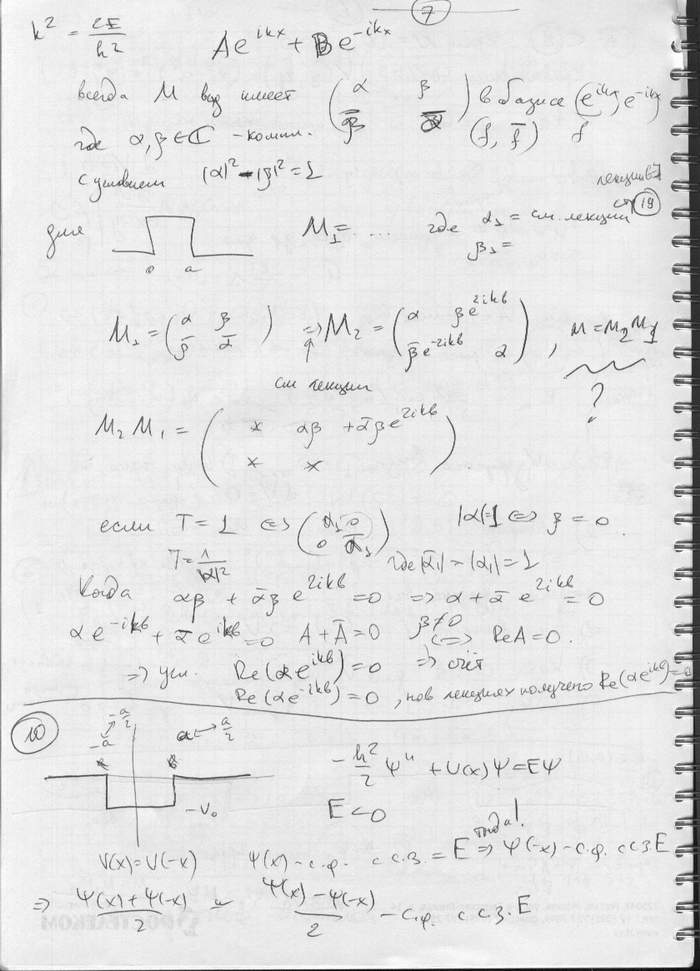 7
k² = 2E/ħ²   Ae^{ikx} + Be^{-ikx}
всегда M вид имеет ( α β ; β̄ ᾱ ) в базисе (e^{ikx}, e^{-ikx})
где α, β ∈ ℂ - компл. (f, f̄) f
с условием |α|² - |β|² = 1
лекции 6-7
стр 19
для M₁ = ... где α₁ = см. лекции
β₁ =
0 a
M₁ = ( α β ; β̄ ᾱ ) ⇒ M₂ = ( α βe^{2ikb} ; β̄e^{-2ikb} α ), M = M₂M₁
см лекции
?
M₂M₁ = ( * αβ + ᾱβe^{2ikb} ; * * )
если T = 1 ⇔ ( α₁ 0 ; 0 ᾱ₁ ) |α|=1 ⇔ β = 0.
T = 1/|α|² где |ᾱ₁| = |α₁| = 1
Когда αβ + ᾱβe^{2ikb} = 0 ⇒ α + ᾱe^{2ikb} = 0
αe^{-ikb} + ᾱe^{ikb} = 0 A + Ā = 0 β≠0 (⇔) Re A = 0.
⇒ усл. Re(αe^{ikb}) = 0 ⇒ счёт
Re(αe^{-ikb}) = 0, но в лекциях получено Re(αe^{ikb}) = 0
10
-a → -a/2   a → a/2
-ħ²/2 ψ'' + U(x)ψ = Eψ
-V₀   E < 0
V(x) = V(-x) ψ(x) - с.ф. с с.з. = E тогда! ⇒ ψ(-x) - с.ф. с с.з E
⇒ (ψ(x) + ψ(-x))/2 и (ψ(x) - ψ(-x))/2 - с.ф. с с.з. E